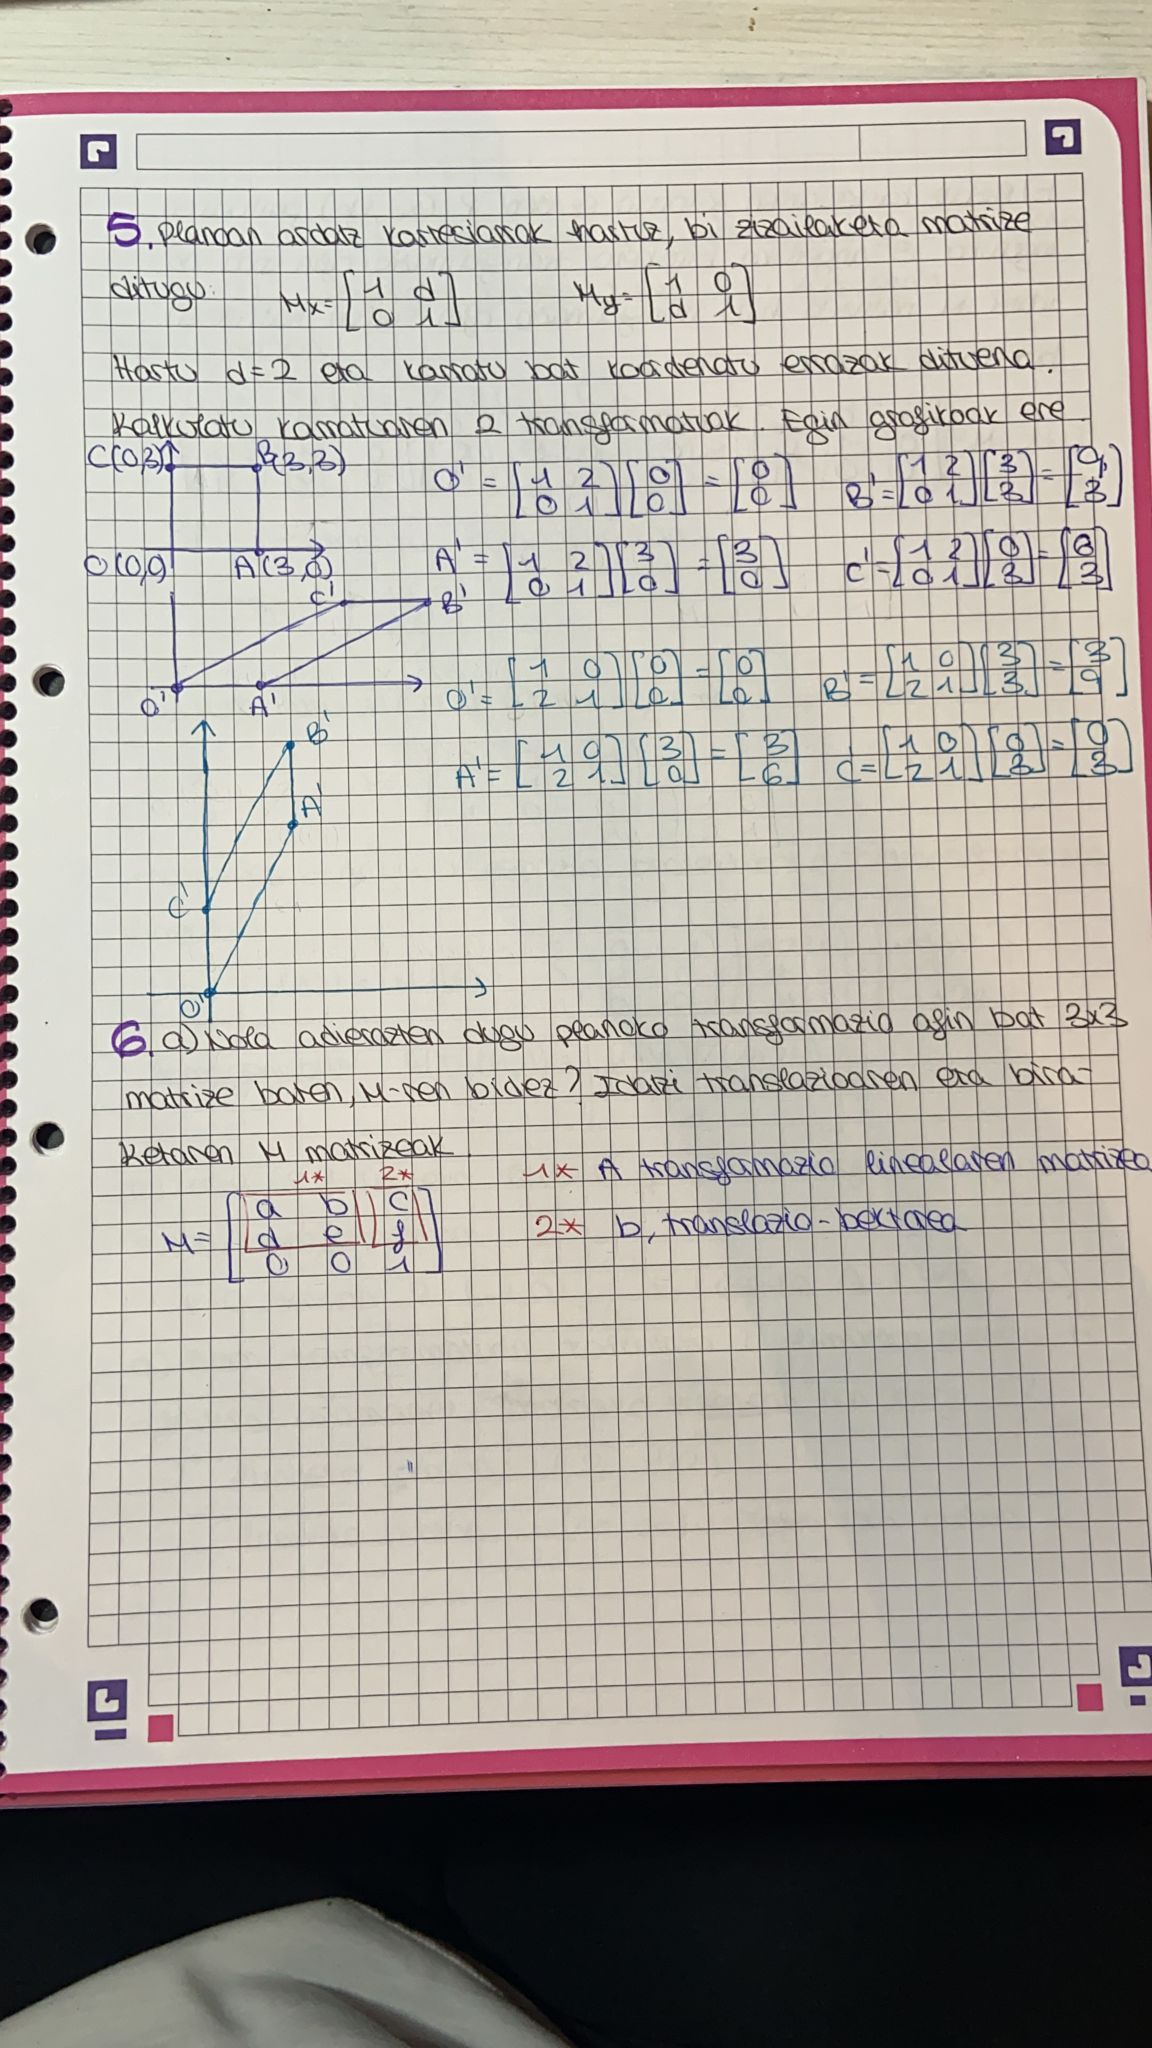 5. Planoan ardatz kartesiarrak hartuz, bi zizailaketa matrize
ditugu: Mx=[1 d; 0 1] My=[1 0; d 1]
Hartu d=2 eta karratu bat koordenatu errazak dituena.
Kalkulatu karratuaren 2 transformatuak. Egin grafikoak ere
C(0,3) B(3,3) O'=[1 2; 0 1][0; 0]=[0; 0] B'=[1 2; 0 1][3; 3]=[9; 3]
O(0,0) A(3,0) A'=[1 2; 0 1][3; 0]=[3; 0] C'=[1 2; 0 1][0; 3]=[6; 3]
C' B'
O' A' O'=[1 0; 2 1][0; 0]=[0; 0] B'=[1 0; 2 1][3; 3]=[3; 9]
B' A'=[1 0; 2 1][3; 0]=[3; 6] C'=[1 0; 2 1][0; 3]=[0; 3]
A'
C'
O'
6. a) Nola adierazten dugu planoko transformazio afin bat 3x3
matrize baten, M-ren bidez? Idatzi translazioaren eta bira-
ketaren M matrizeak
1* 2* 1* A transformazio linealaren matrizea
M=[a b c; d e f; 0 0 1] 2* b, translazio-bektorea